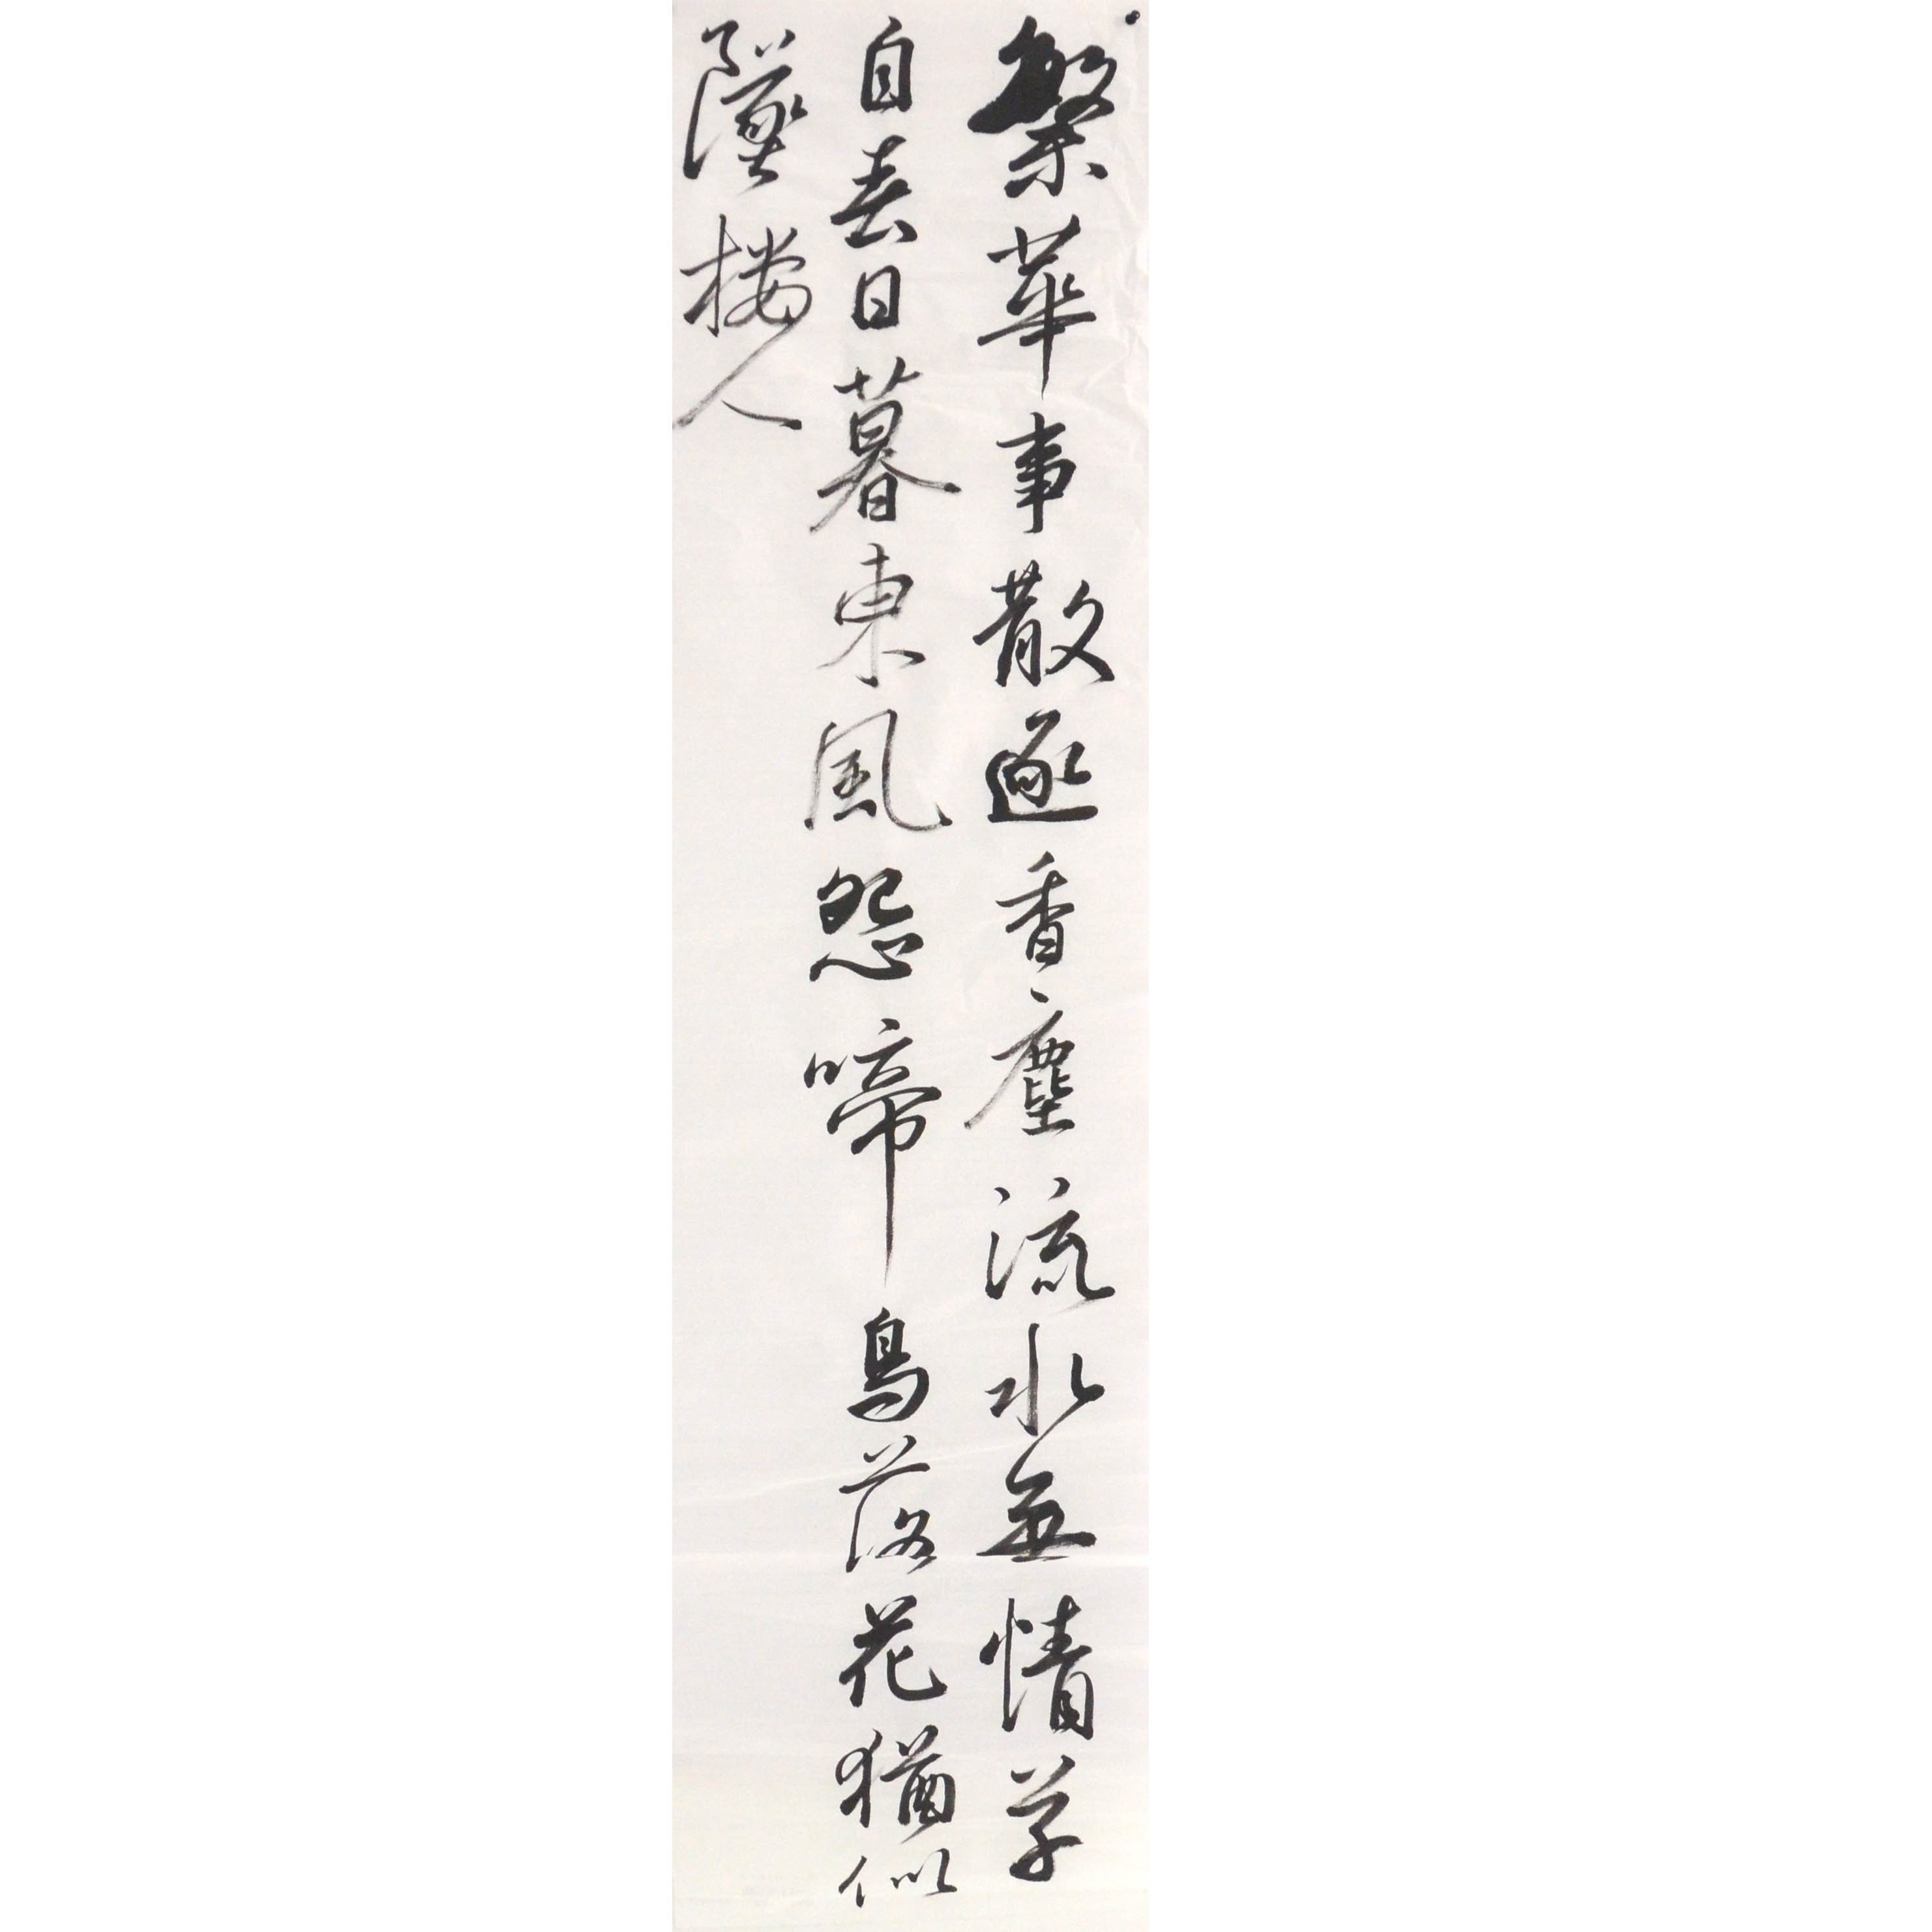 繁華事散逐香塵流水無情草
自春日暮東風怨啼鳥落花猶似
墜樓人